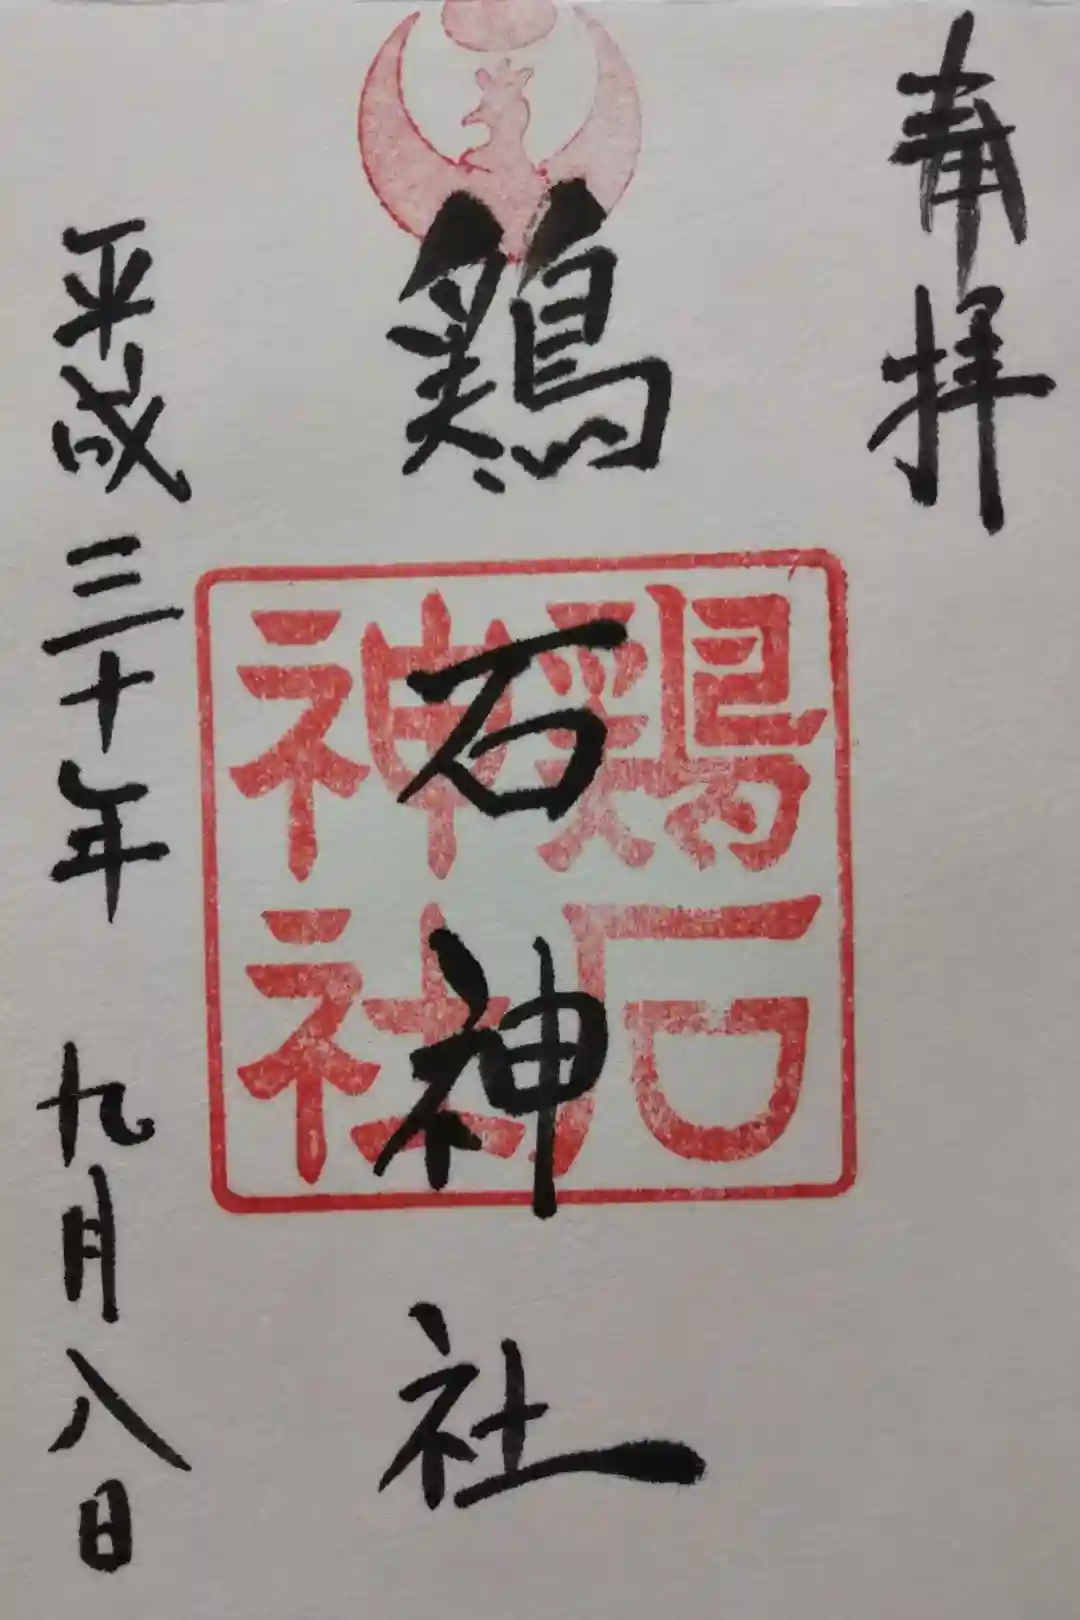 奉拝
鶏石神社
鶏石
神社
平成三十年 九月八日